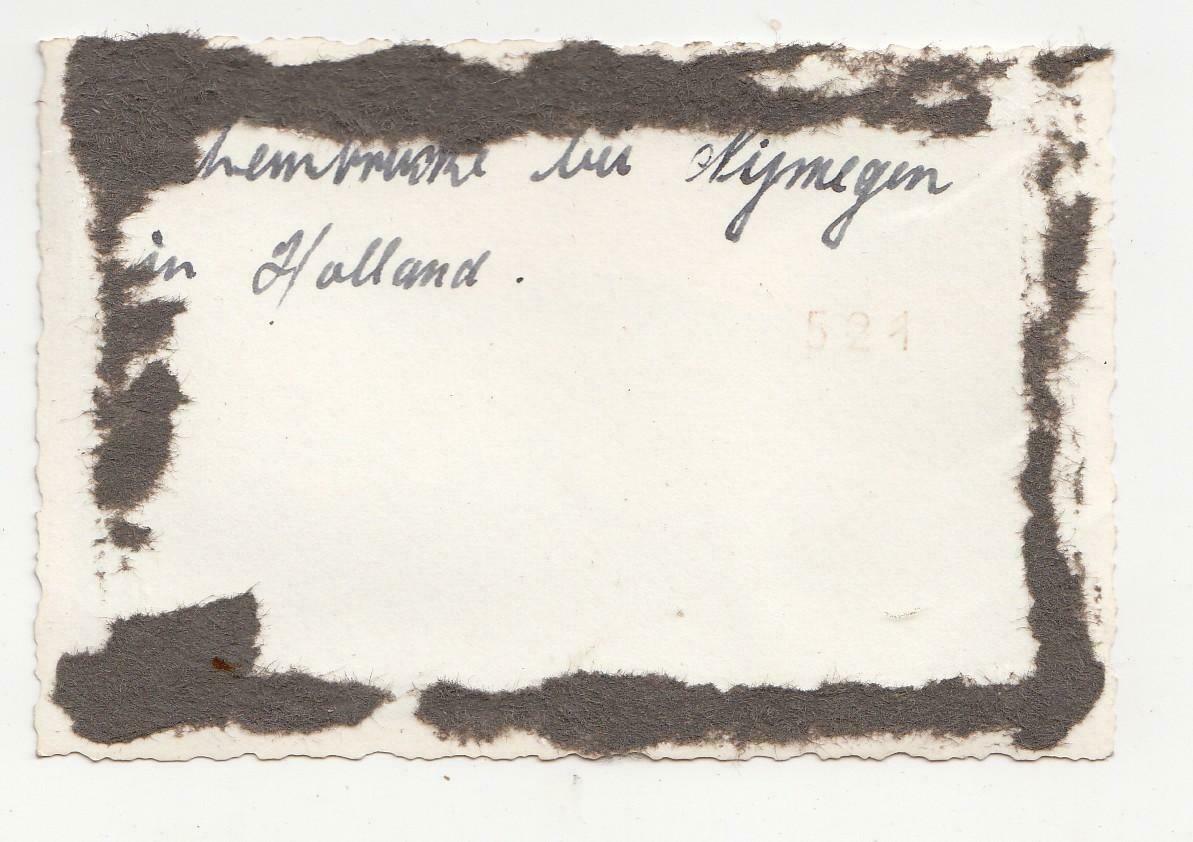 heinbrücke bei Nijmegen
in Holland.
521